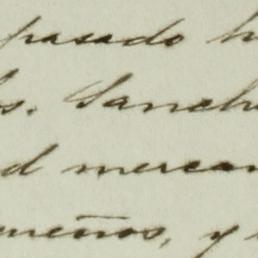 pasado h
s. Sanch
d mercan
ueños, y